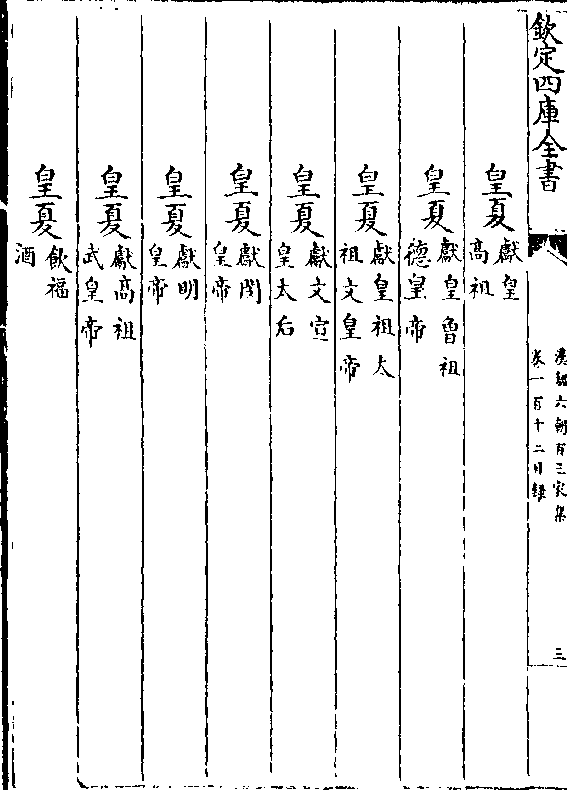 欽定四庫全書
漢魏六朝百三家集
卷一百十二目録
三
皇夏獻皇高祖
皇夏獻皇曾祖德皇帝
皇夏獻皇祖太祖文皇帝
皇夏獻文宣皇太后
皇夏獻閔皇帝
皇夏獻明皇帝
皇夏獻高祖武皇帝
皇夏飲福酒